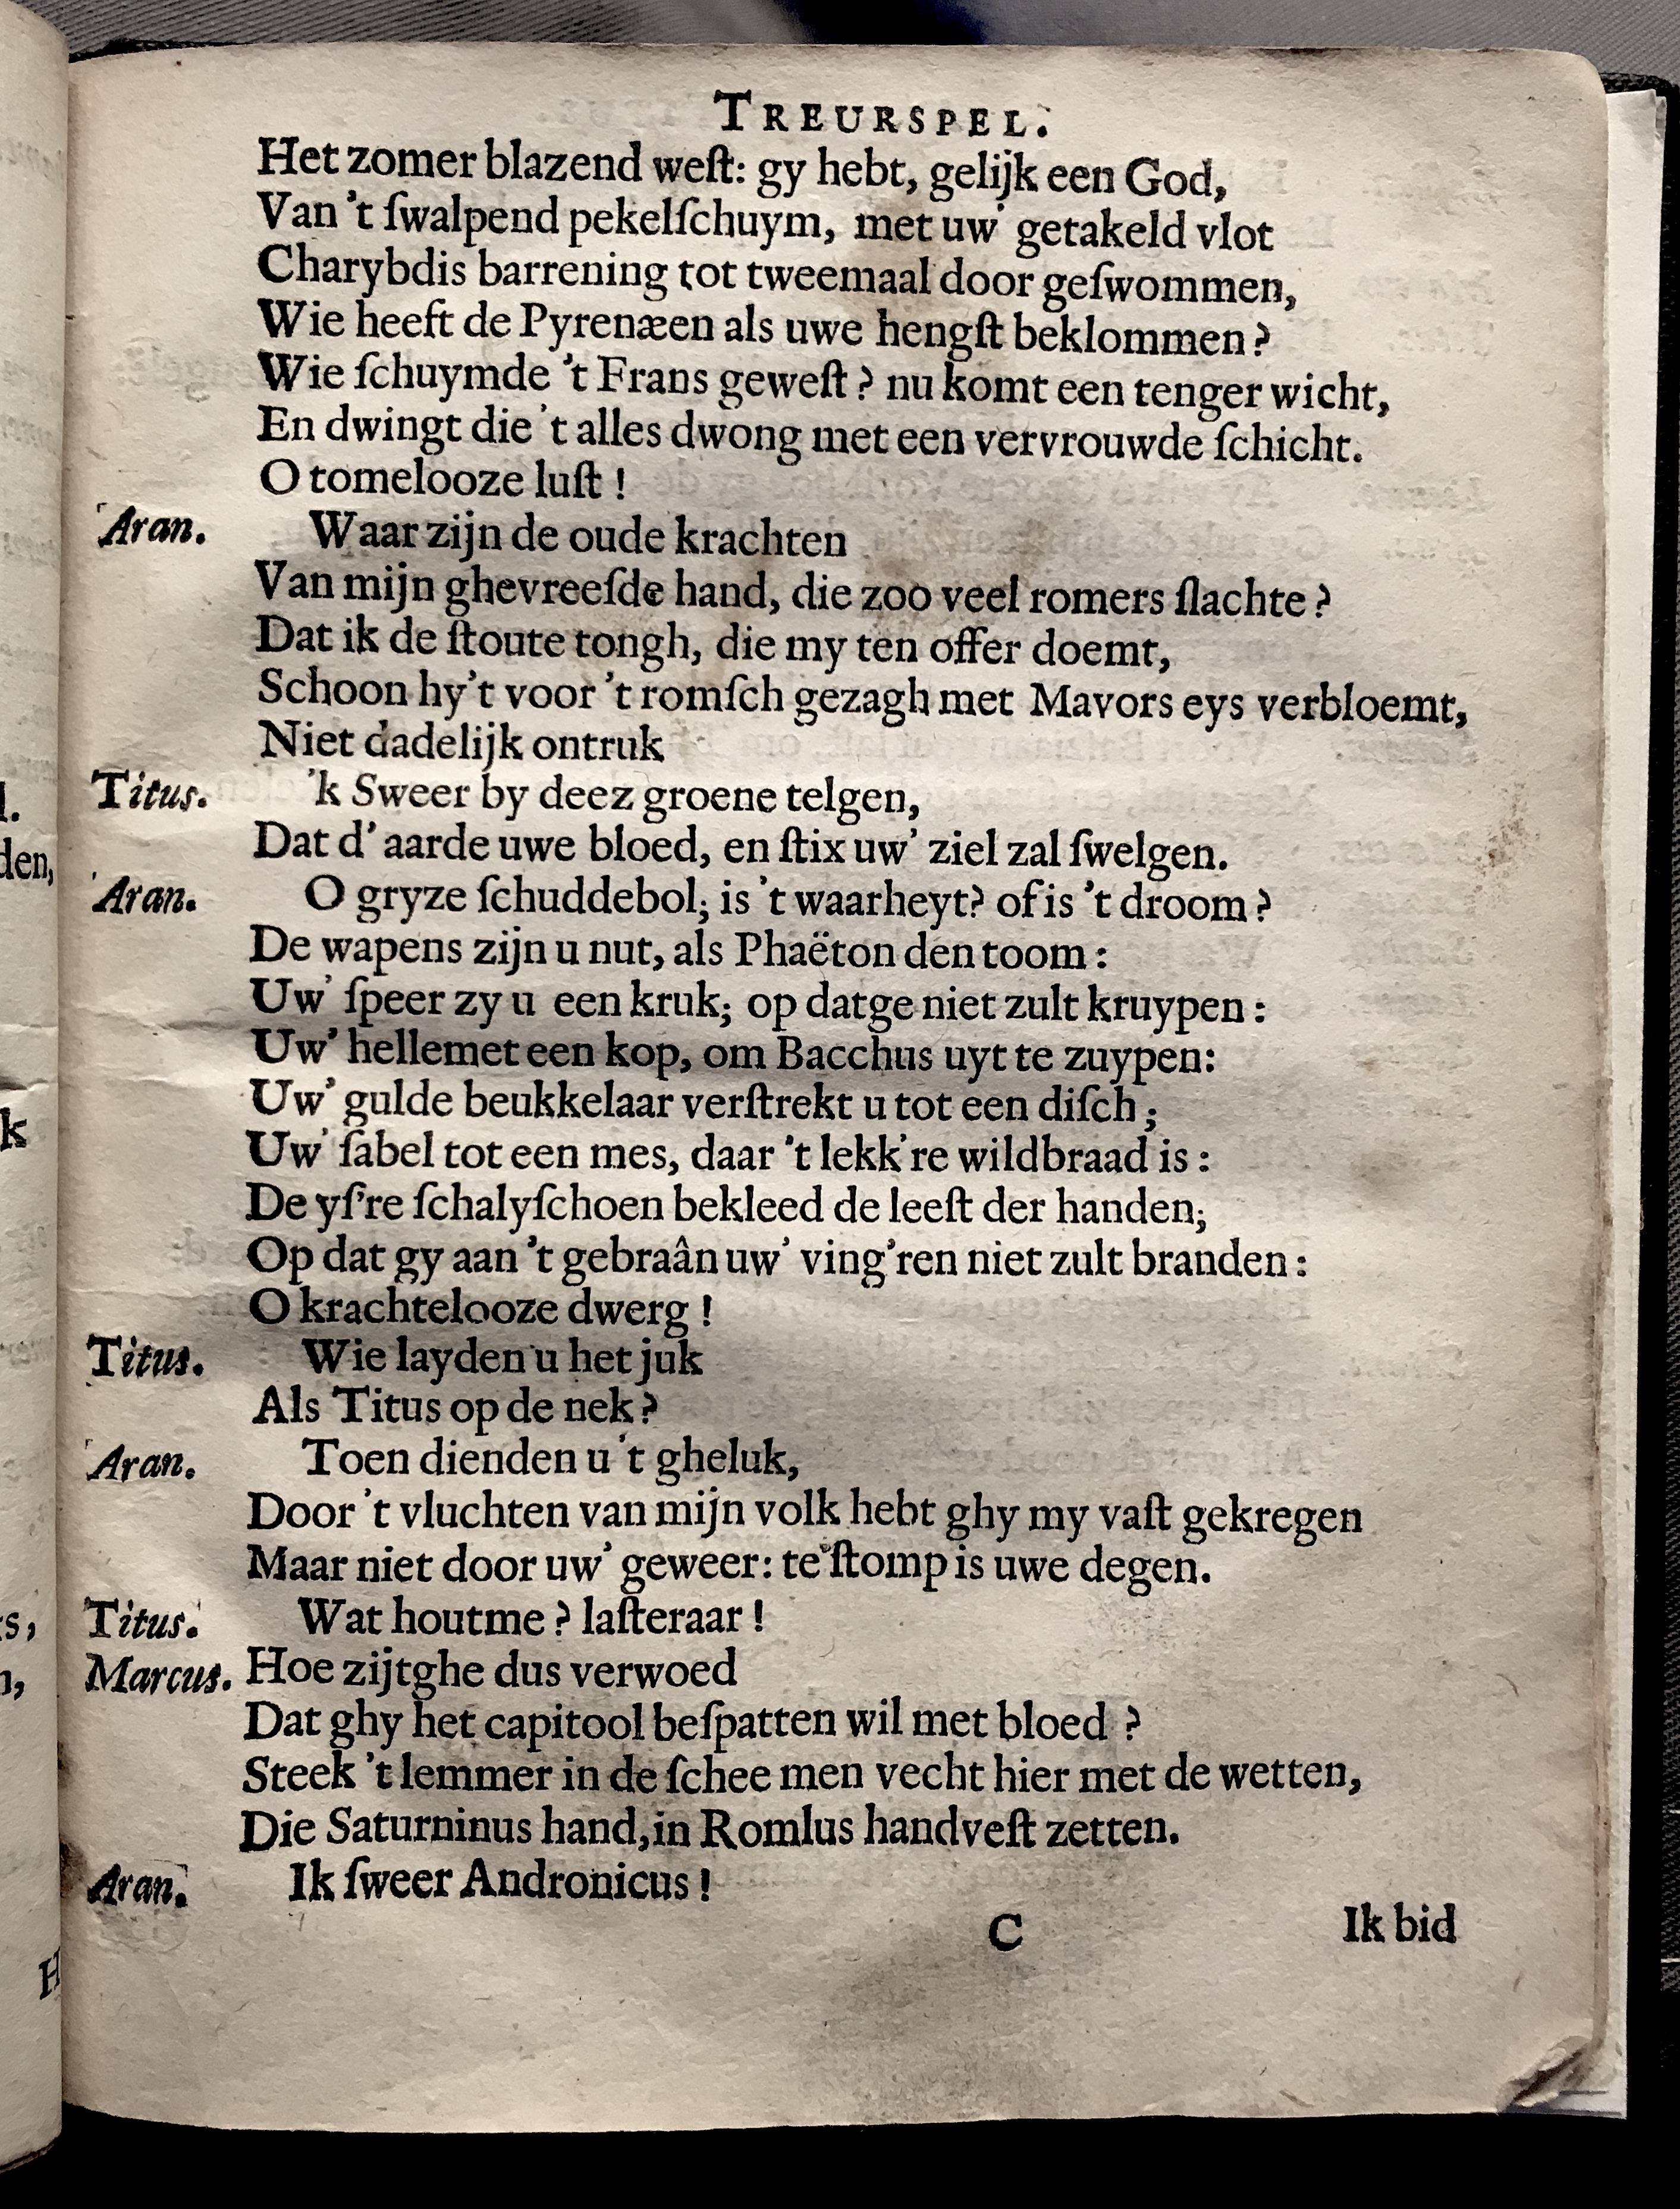 TREURSPEL.
Het zomer blazend weſt: gy hebt, gelijk een God,
Van 't ſwalpend pekelſchuym, met uw' getakeld vlot
Charybdis barrening tot tweemaal door geſwommen,
Wie heeft de Pyrenæen als uwe hengſt beklommen?
Wie ſchuymde 't Frans geweſt? nu komt een tenger wicht,
En dwingt die 't alles dwong met een vervrouwde ſchicht.
O tomelooze luſt!
Aran. Waar zijn de oude krachten
Van mijn ghevreeſde hand, die zoo veel romers ſlachte?
Dat ik de ſtoute tongh, die my ten offer doemt,
Schoon hy't voor 't romſch gezagh met Mavors eys verbloemt,
Niet dadelijk ontruk
Titus. 'k Sweer by deez groene telgen,
Dat d' aarde uwe bloed, en ſtix uw' ziel zal ſwelgen.
Aran. O gryze ſchuddebol; is 't waarheyt? of is 't droom?
De wapens zijn u nut, als Phaëton den toom:
Uw' ſpeer zy u een kruk; op datge niet zult kruypen:
Uw' hellemet een kop, om Bacchus uyt te zuypen:
Uw' gulde beukkelaar verſtrekt u tot een diſch;
Uw' ſabel tot een mes, daar 't lekk're wildbraad is:
De yſ're ſchalyſchoen bekleed de leeſt der handen;
Op dat gy aan 't gebraân uw' ving'ren niet zult branden:
O krachtelooze dwerg!
Titus. Wie layden u het juk
Als Titus op de nek?
Aran. Toen dienden u 't gheluk,
Door 't vluchten van mijn volk hebt ghy my vaſt gekregen
Maar niet door uw' geweer: te ſtomp is uwe degen.
Titus. Wat houtme? laſteraar!
Marcus. Hoe zijtghe dus verwoed
Dat ghy het capitool beſpatten wil met bloed?
Steek 't lemmer in de ſchee men vecht hier met de wetten,
Die Saturninus hand, in Romlus handveſt zetten.
Aran. Ik ſweer Andronicus!
C Ik bid